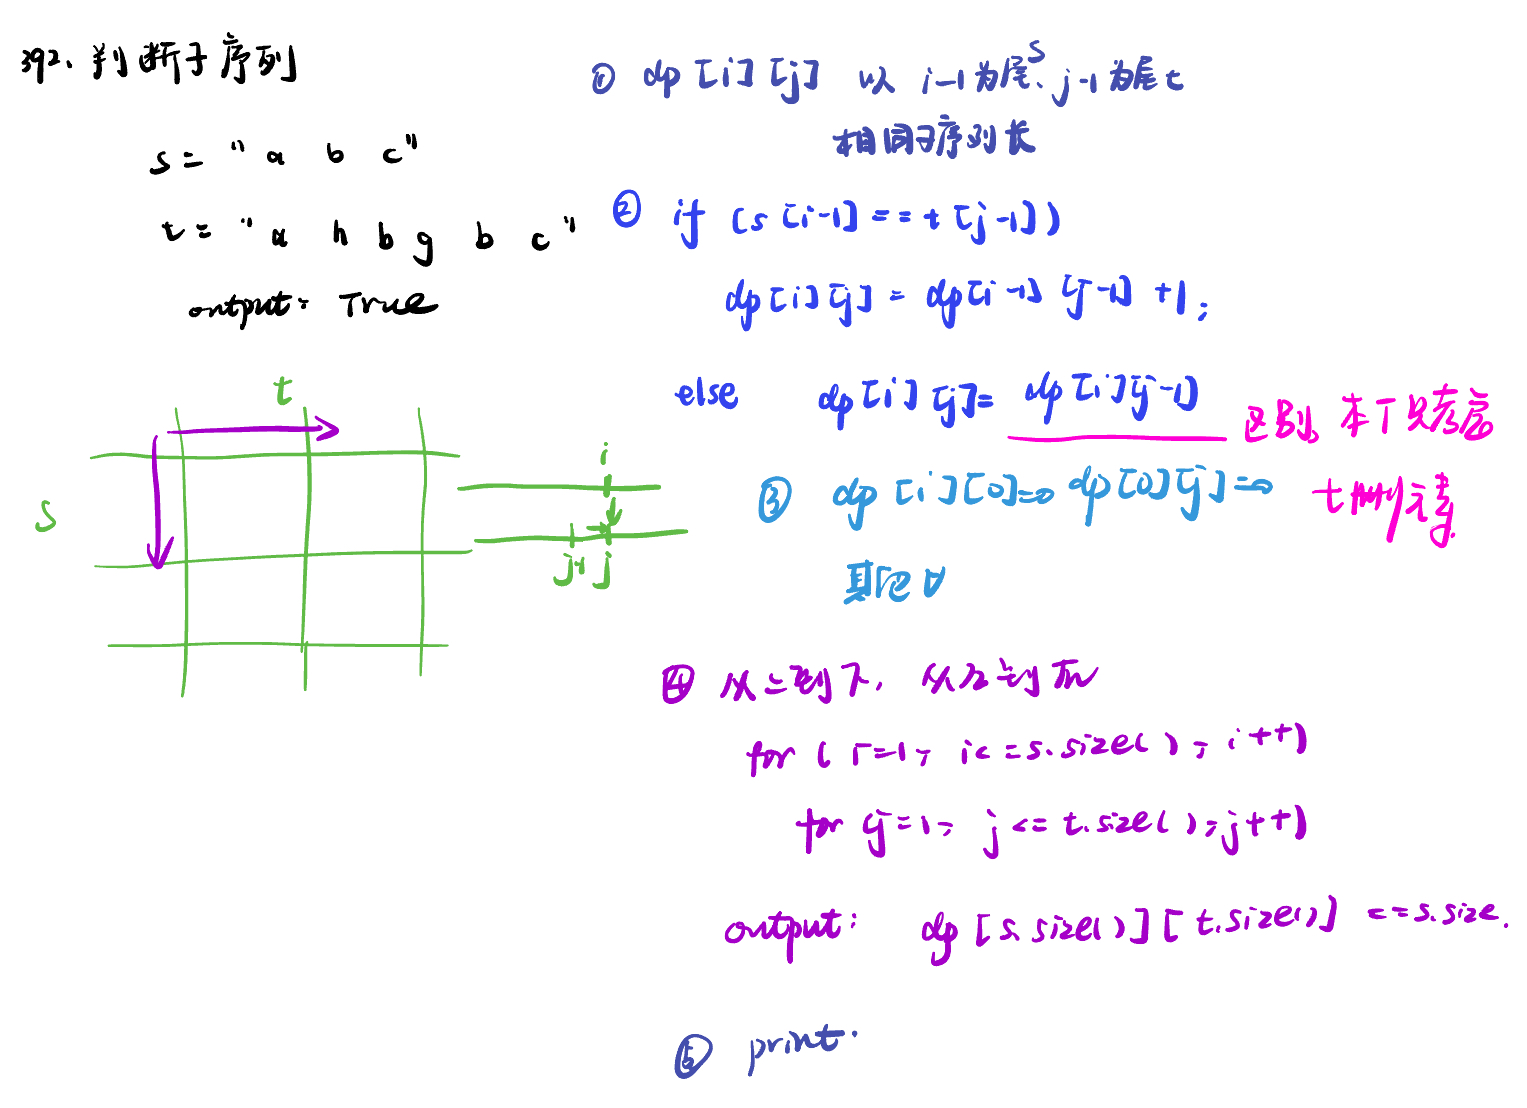 392、判断子序列
s = "a b c"
t = "a h b g b c"
output: True
① dp[i][j] 以 i-1为尾s、j-1为尾t
相同子序列长
② if (s[i-1]==t[j-1])
dp[i][j] = dp[i-1][j-1]+1;
else dp[i][j]= dp[i][j-1]
区别 本T只考虑
t删元素.
③ dp[i][0]=0 dp[0][j]=0
其它∀
④ 从上到下, 从左到右
for (i=1; i<=s.size(); i++)
for (j=1; j<=t.size(); j++)
output: dp[s.size()][t.size()] ==s.size.
⑤ print.
t
s
i
j-1 j